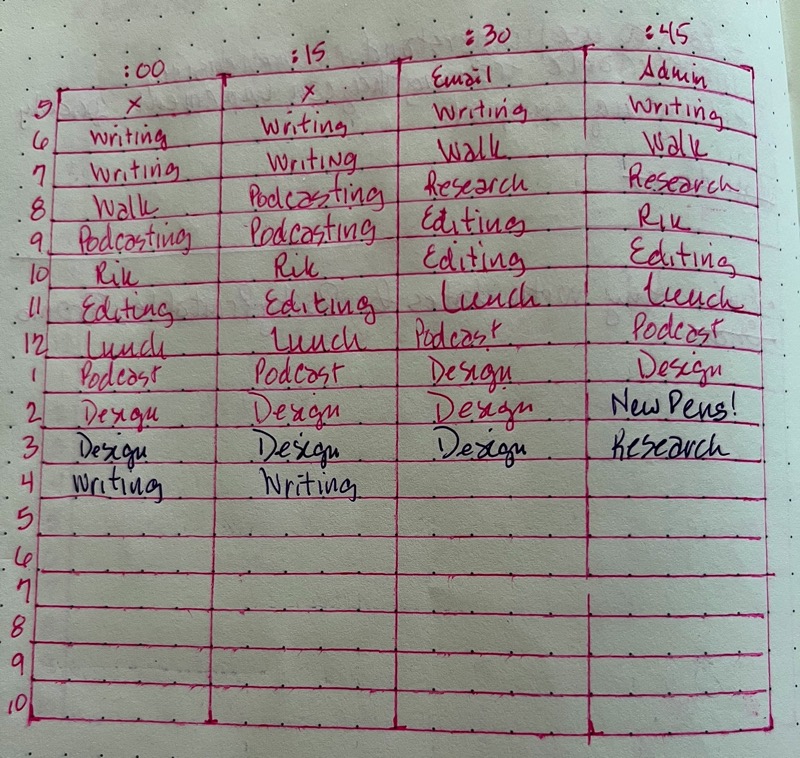 :00 :15 :30 :45
5 x x Email Admin
6 Writing Writing Writing Writing
7 Writing Writing Walk Walk
8 Walk Podcasting Research Research
9 Podcasting Podcasting Editing Rik
10 Rik Rik Editing Editing
11 Editing Editing Lunch Lunch
12 Lunch Lunch Podcast Podcast
1 Podcast Podcast Design Design
2 Design Design Design New Pens!
3 Design Design Design Research
4 Writing Writing
5
6
7
8
9
10